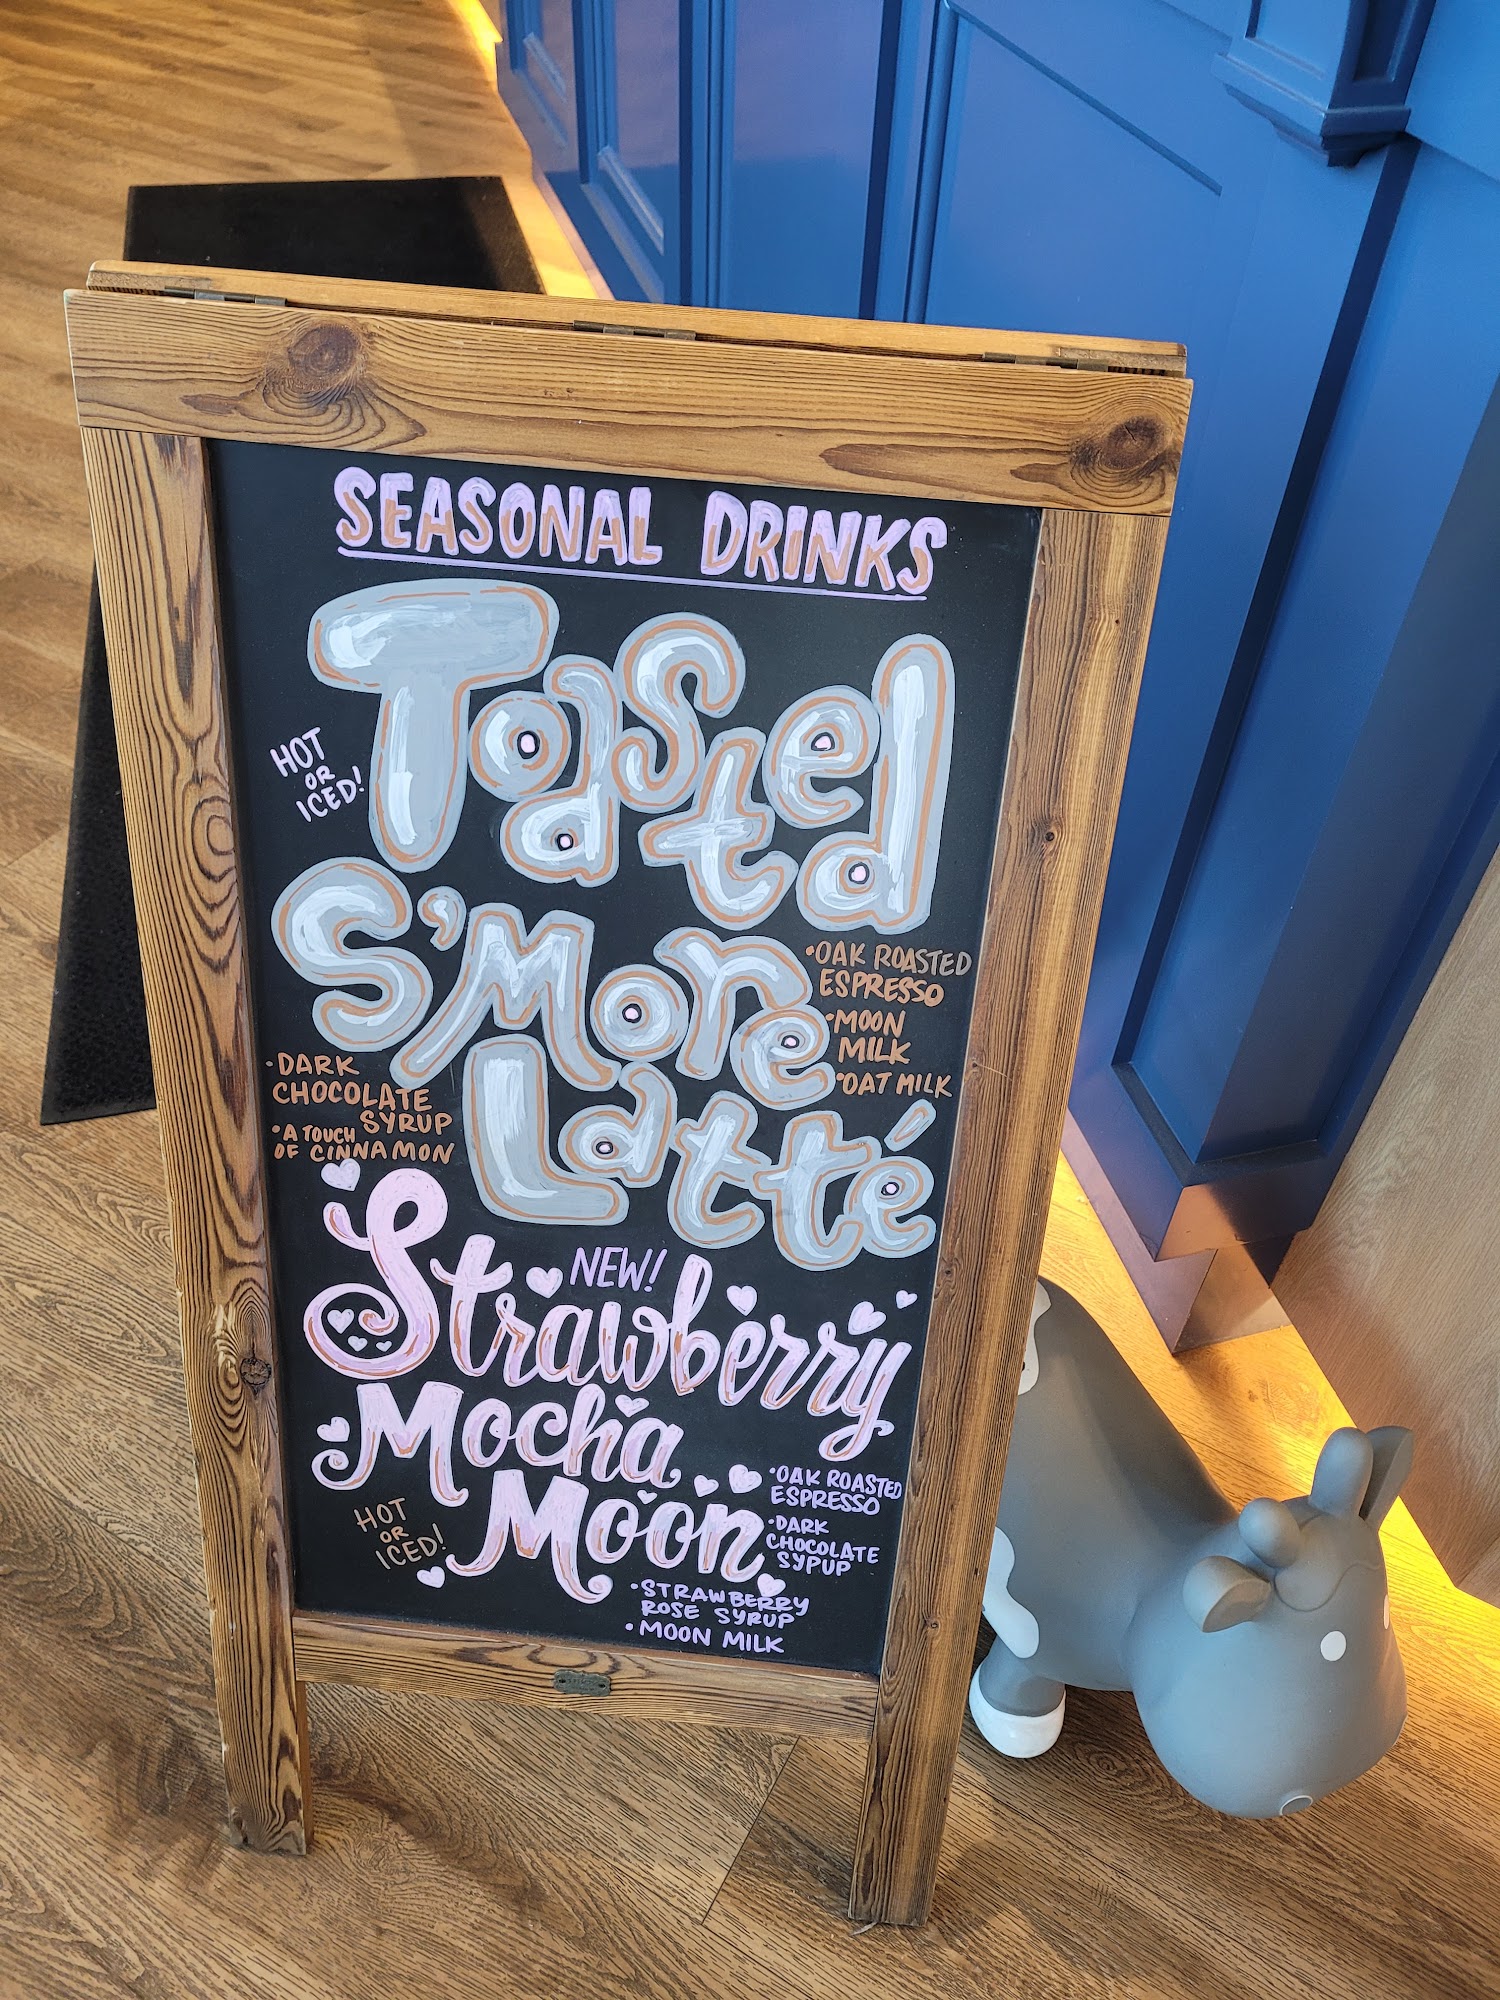 SEASONAL DRINKS
Toasted
HOT
OR
ICED!
S'More
Latté
•OAK ROASTED
ESPRESSO
•MOON
MILK
•OAT MILK
•DARK
CHOCOLATE
SYRUP
•A TOUCH
OF CINNAMON
NEW!
Strawberry
Mocha
Moon
HOT
OR
ICED!
•OAK ROASTED
ESPRESSO
•DARK
CHOCOLATE
SYPUP
•STRAWBERRY
ROSE SYRUP
•MOON MILK